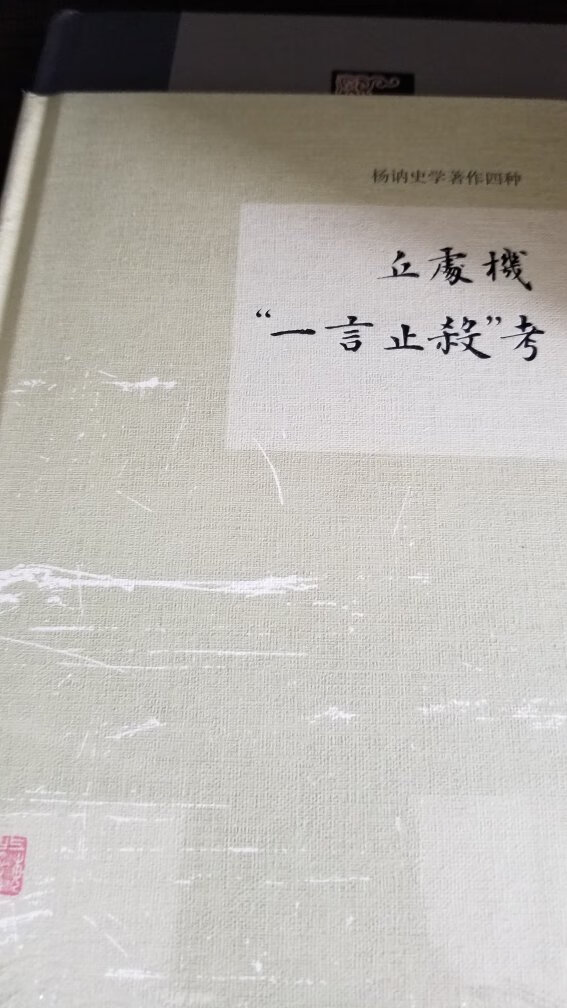 杨讷史学著作四种
丘處機
“一言止殺”考